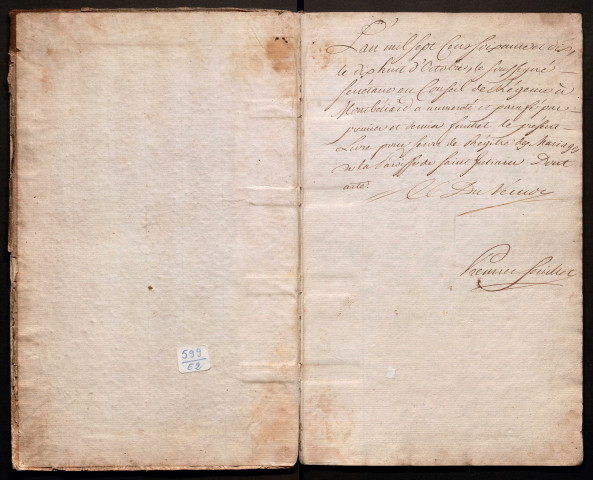 599
E2
L'an mil sept Cens soixante et dix,
le dixhuit d'Octobre, le soussigné
Secrétaire au Conseil de Régence à
Montbéliard a numeroté et paraphé par
premier et dernier feuillet le présent
Livre pour servir de Régître des Mariages
de la Paroisse de Saint Julien Dont
acte.
Du Vernoy
Premier feuillet